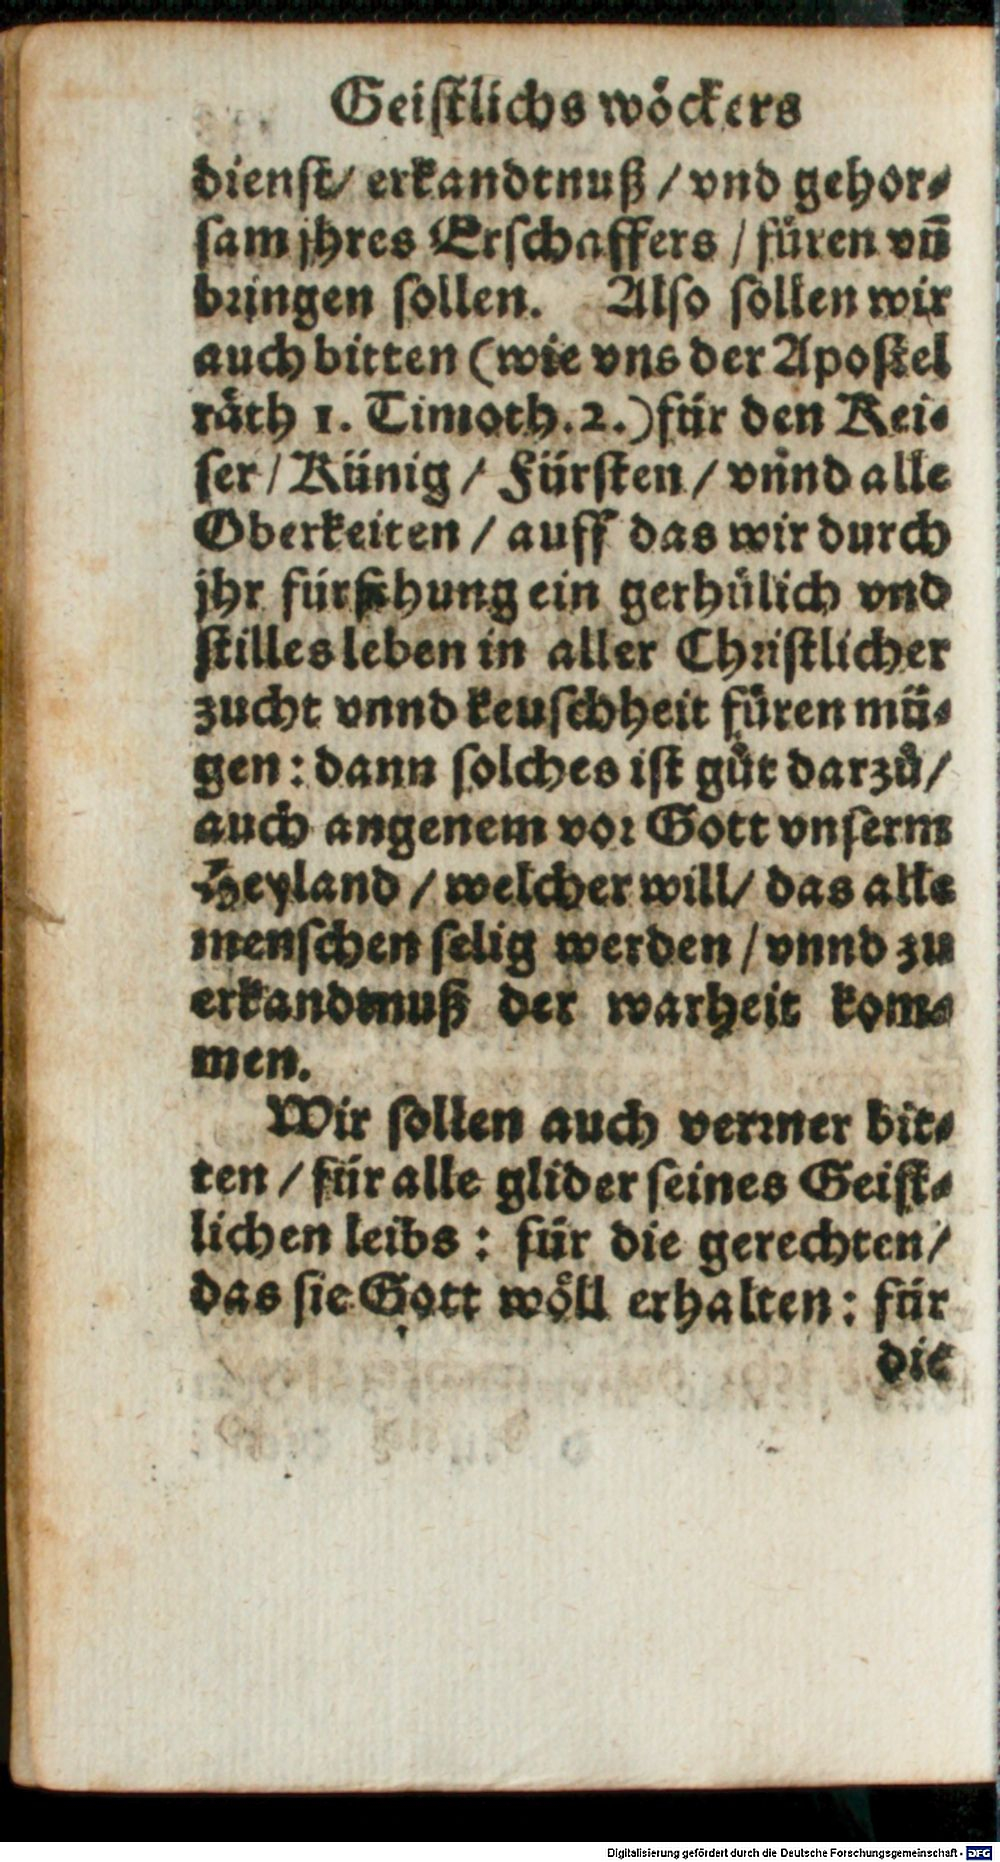 Geistlichs wöckers
dienst/ erkandtnuß / vnd gehor⸗
sam jhres Erschaffers / füren vn̄
bringen sollen. Also sollen wir
auch bitten (wie vns der Apostel
räth 1. Timoth. 2.) für den Kei⸗
ser / Künig / Fürsten / vnnd alle
Oberkeiten / auff das wir durch
jhr fürsehung ein gerhülich vnd
stilles leben in aller Christlicher
zucht vnnd keuschheit füren mü⸗
gen: dann solches ist gůt darzů/
auch angenem vor Gott vnserm
Heyland / welcher will/ das alle
menschen selig werden / vnnd zu
erkandtnuß der warheit kom⸗
men.
Wir sollen auch verrner bit⸗
ten / für alle glider seines Geist⸗
lichen leibs : für die gerechten/
das sie Gott wöll erhalten : für
die
Digitalisierung gefördert durch die Deutsche Forschungsgemeinschaft - DFG